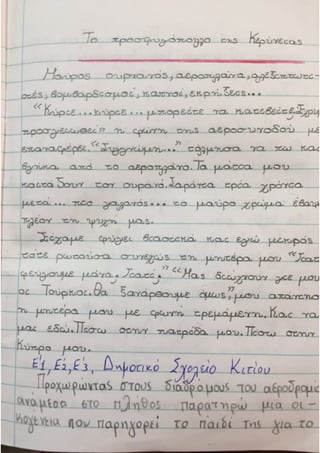 Το προσφυγόπουλο της Κερύνειας
Μαύρος ουρανός, αεροπλάνα, αλεξιπτωτι-
στές, βομβαρδισμοί, καπνοί, εκρήξεις...
"Κύριε...κύριε...μπορείτε να κατεβείτε. Έχουμε
προσγειωθεί" η φωνή της αεροσυνοδού με
επαναφέρει. "Συγγνώμη..." τόλμησα να πω και
βγήκα από το αεροπλάνο. Τα μάτια μου
κοιτάζουν τον ουρανό. Σαράντα τρία χρόνια
μετά... πιο γαλανός... το μαύρο χρώμα έβαψε
πλέον τη ψυχή μας.
Είχαμε φύγει βιαστικά και εγώ μικρός
τότε ρωτούσα συνεχώς τη μητέρα μου "Γιατί
φεύγουμε μάνα. Γιατί;" "Μας διώχνουν γιε μου
οι Τούρκοι. Θα ξανάρθουμε όμως", μου απάντησε
η μητέρα μου με φωνή τρεμάμενη. Και να
μας εδώ. Πίσω στην πατρίδα μου. Πίσω στην
Κύπρο μου.
Ε΄1, Ε΄2, Ε΄3, Δημοτικό Σχολείο Κιτίου
Προχωρώντας στους διαδρόμους του αεροδρομίου
ανάμεσα στο πλήθος παρατηρώ μια οι-
κογένεια που παρηγορεί το παιδί της για το